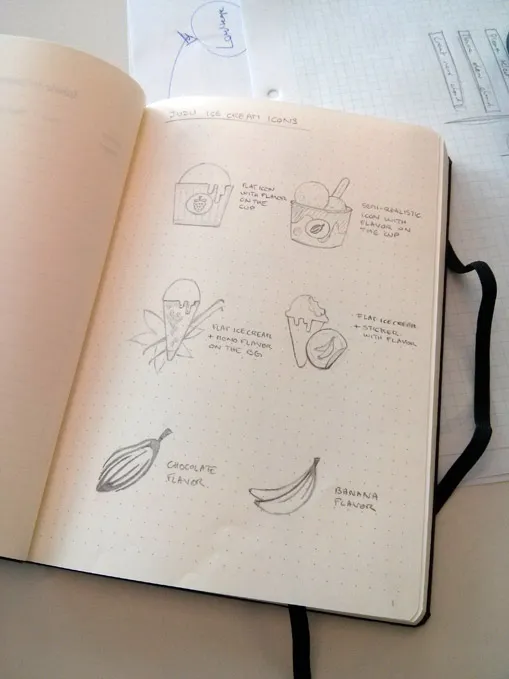 ICE CREAM ICONS
FLAT ICON
WITH FLAVOR
ON THE
CUP
SEMI-REALISTIC
ICON WITH
FLAVOR ON
THE CUP
FLAT ICECREAM
+ MONO FLAVOR
ON THE BG
FLAT ICECREAM
+ STICKER
WITH FLAVOR
CHOCOLATE
FLAVOR
BANANA
FLAVOR
1